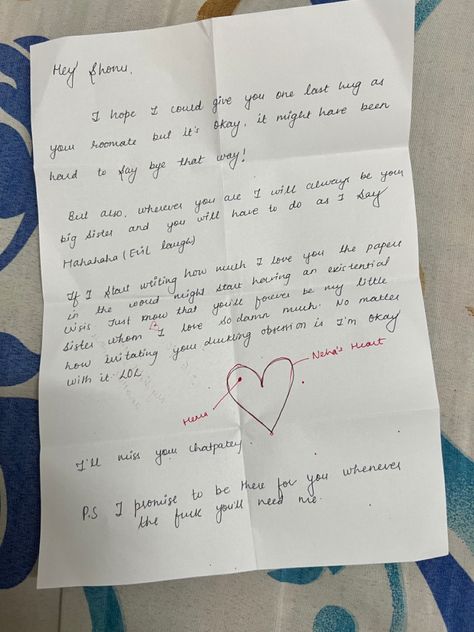 Hey Shonu,
I hope I could give you one last hug as
your roomate but it's okay, it might have been
hard to say bye that way!
But also, wherever you are I will always be your
big sister and you will have to do as I say
Hahahaha (Evil laughs)
If I start writing how much I love you the papers
in the world might start having an existential
crisis. Just know that you'll forever be my little
sister whom I love so damn much. No matter
how irritating your ducking obsession is I'm okay
with it. LOL
Neha's Heart
Here
I'll miss you chatpatey.
P.S I promise to be there for you whenever
the fuck you'll need me.